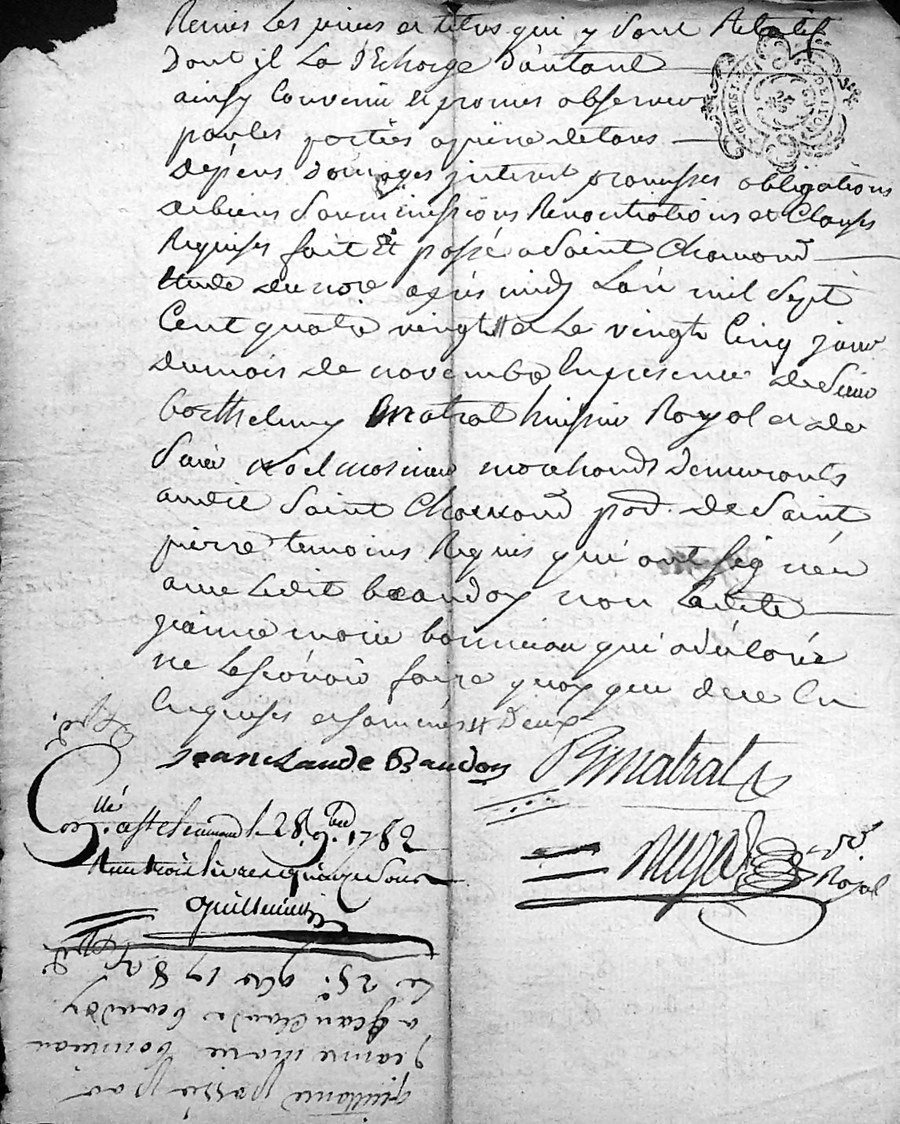 Remis les pieces et titres qui y sont Relatif
Dont il La d'Echarge d'autant
ainsy Convenu et promis observer
par les parties a peine de tous
depens domages interest promesses obligations
de biens soumissions Renontiations et Clauses
Requises fait et passé a Saint Chamond
Etude du nore après midy L'an mil Sept
Cent quatre vingt Le vingt Cinq jour
du mois de novembre En presence de Sieur
barthelemy Matrat huissier Royal et de
Sieur Noël marchands demeurants
audit Saint Chamond par. de Saint
pierre temoins Requis qui ont Signés
avec Ledit beaudoy non Ladite
jeanne marie bonneau qui a déclaré
ne Le sçavoir faire quoy que de ce
Enquises et sommés Deux
Jean claude Baudoy BMatrat
Conllé. a St chamond le 28 9bre 1782
Royal
Le 25e. 9bre 1782
a jean Claude beaudoy
Jeanne marie bonneau
quittance passée par